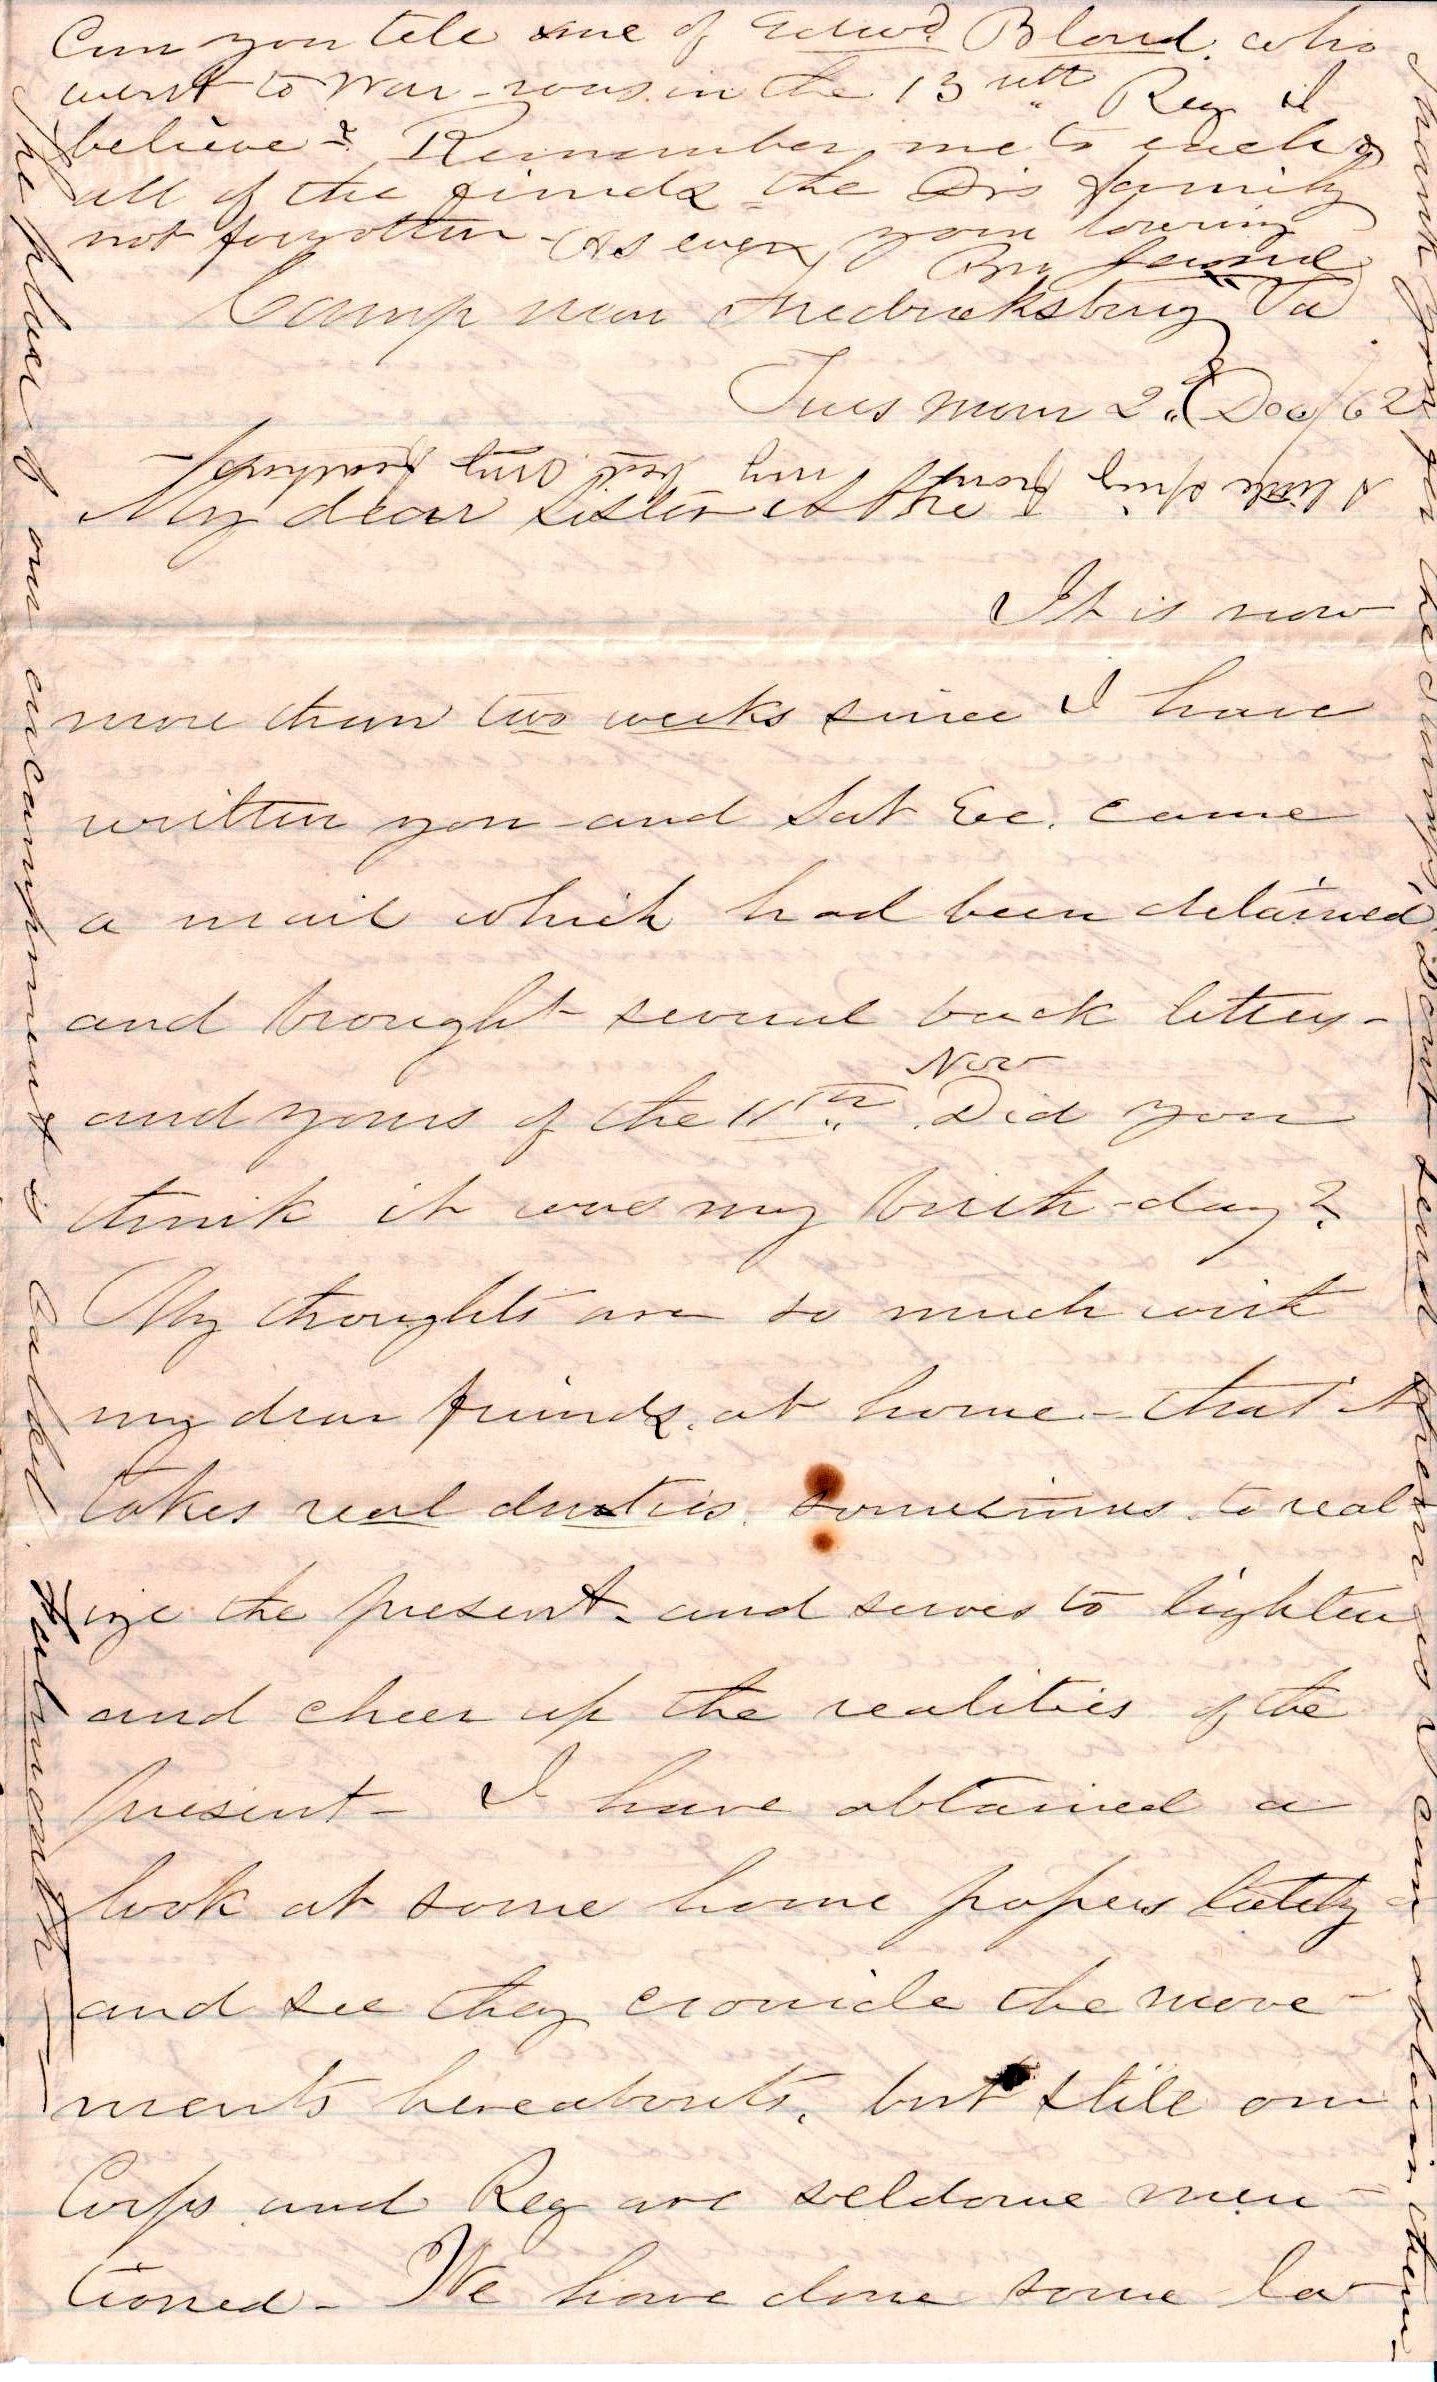 Can you tele me of Edwd. Bland. who
went to War - was in the 13th Reg I
believe? Remember me to each &
all of the friends - the Drs family
not forgotten - As ever your loving
Bro
Camp near Fredricksburg Va
Tues morn 2d Dec/62
A little spig from my
My dear Sister Abbie
It is now
more than two weeks since I have
written you - and Sat Eve. came
a mail which had been detained
and brought several back letters -
and yours of the 11th Nov. Did you
think it was my birth-day?
My thoughts are so much with
my dear friends. at home - that it
takes real duties. sometimes. to real
ize the present - and serves to lighten
and cheer up the realities of the
present - I have obtained a
look at some home papers lately -
and see they cronicle the move-
ments hereabouts. but stile our
Corps and Reg are seldome men-
tioned - We have done some la-
The place of our encampment is called Falmouth -
Thank you for the stamps, Dont send them as I can obtain them -